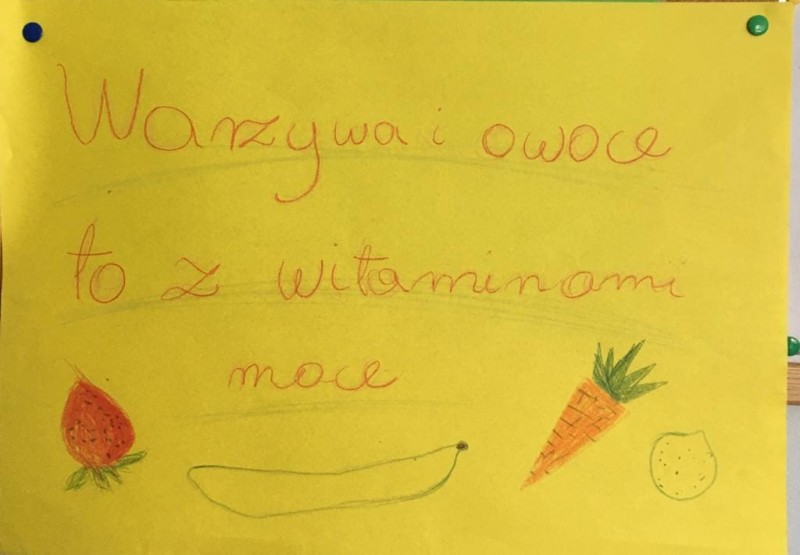 Warzywa i owoce
to z witaminami
moce